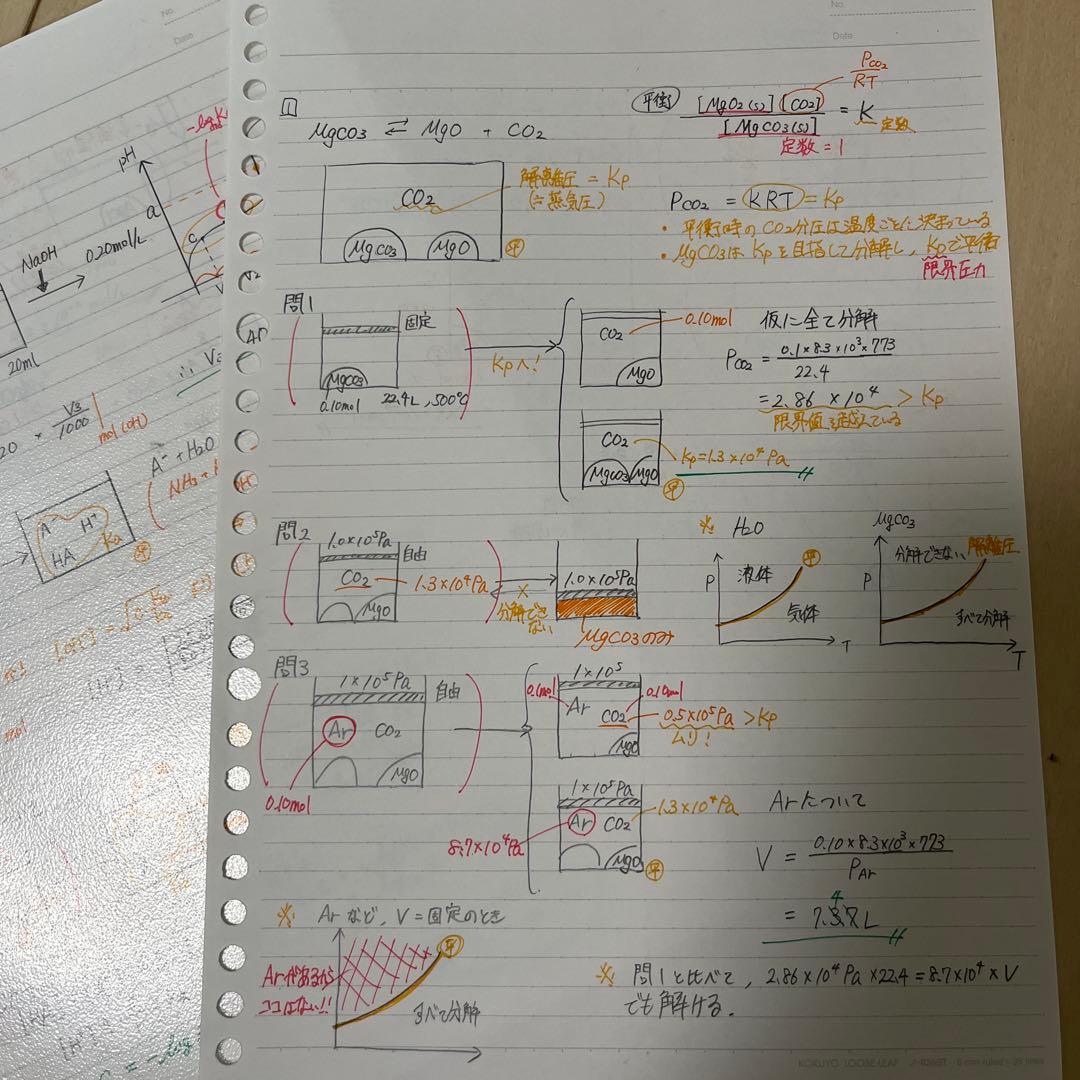 No.
Date
No.
Date
1
MgCO3 ⇄ MgO + CO2
平衡
[MgO2(s)][CO2] / [MgCO3(s)] = K 定数
PCO2 / RT
定数=1
CO2
MgCO3 MgO
解離圧 = Kp
(≒蒸気圧)
平
PCO2 = KRT = Kp
・平衡時のCO2分圧は温度ごとに決まっている
・MgCO3はKpを目指して分解し、Kpで平衡
限界圧力
問1
固定
MgCO3
0.10mol 22.4L, 500℃
Kpへ!
CO2 0.10mol
MgO
仮に全て分解
PCO2 = 0.1×8.3×10³×773 / 22.4
= 2.86 × 10⁴ > Kp
限界値を超えている
CO2
Kp=1.3×10⁴Pa
MgCO3 MgO
平
問2
1.0×10⁵Pa
自由
CO2 1.3×10⁴Pa
MgO
×
分解できない
1.0×10⁵Pa
MgCO3のみ
※ H2O
P
液体
平
気体
T
MgCO3
P
分解できない
解離圧
すべて分解
T
問3
1×10⁵Pa
自由
Ar CO2
MgO
0.10mol
1×10⁵
0.1mol
Ar
0.10mol
CO2 0.5×10⁵Pa >Kp
ムリ!
MgO
1×10⁵Pa
Ar CO2 1.3×10⁴Pa
8.7×10⁴Pa
MgO
平
Arについて
V = 0.10×8.3×10³×773 / PAr
4
= 7.37L
※ Arなど、V=固定のとき
平
Arがあるから
ココはない!!
すべて分解
※ 問1と比べて、2.86×10⁴Pa×22.4=8.7×10⁴×V
でも解ける.
KOKUYO LOOSE-LEAF
pH
a
NaOH
0.20mol/L
20ml
∴ V3
V3 / 1000
mol(OH)
A⁻+H2O
A⁻ H⁺
HA Ka
平
Ar